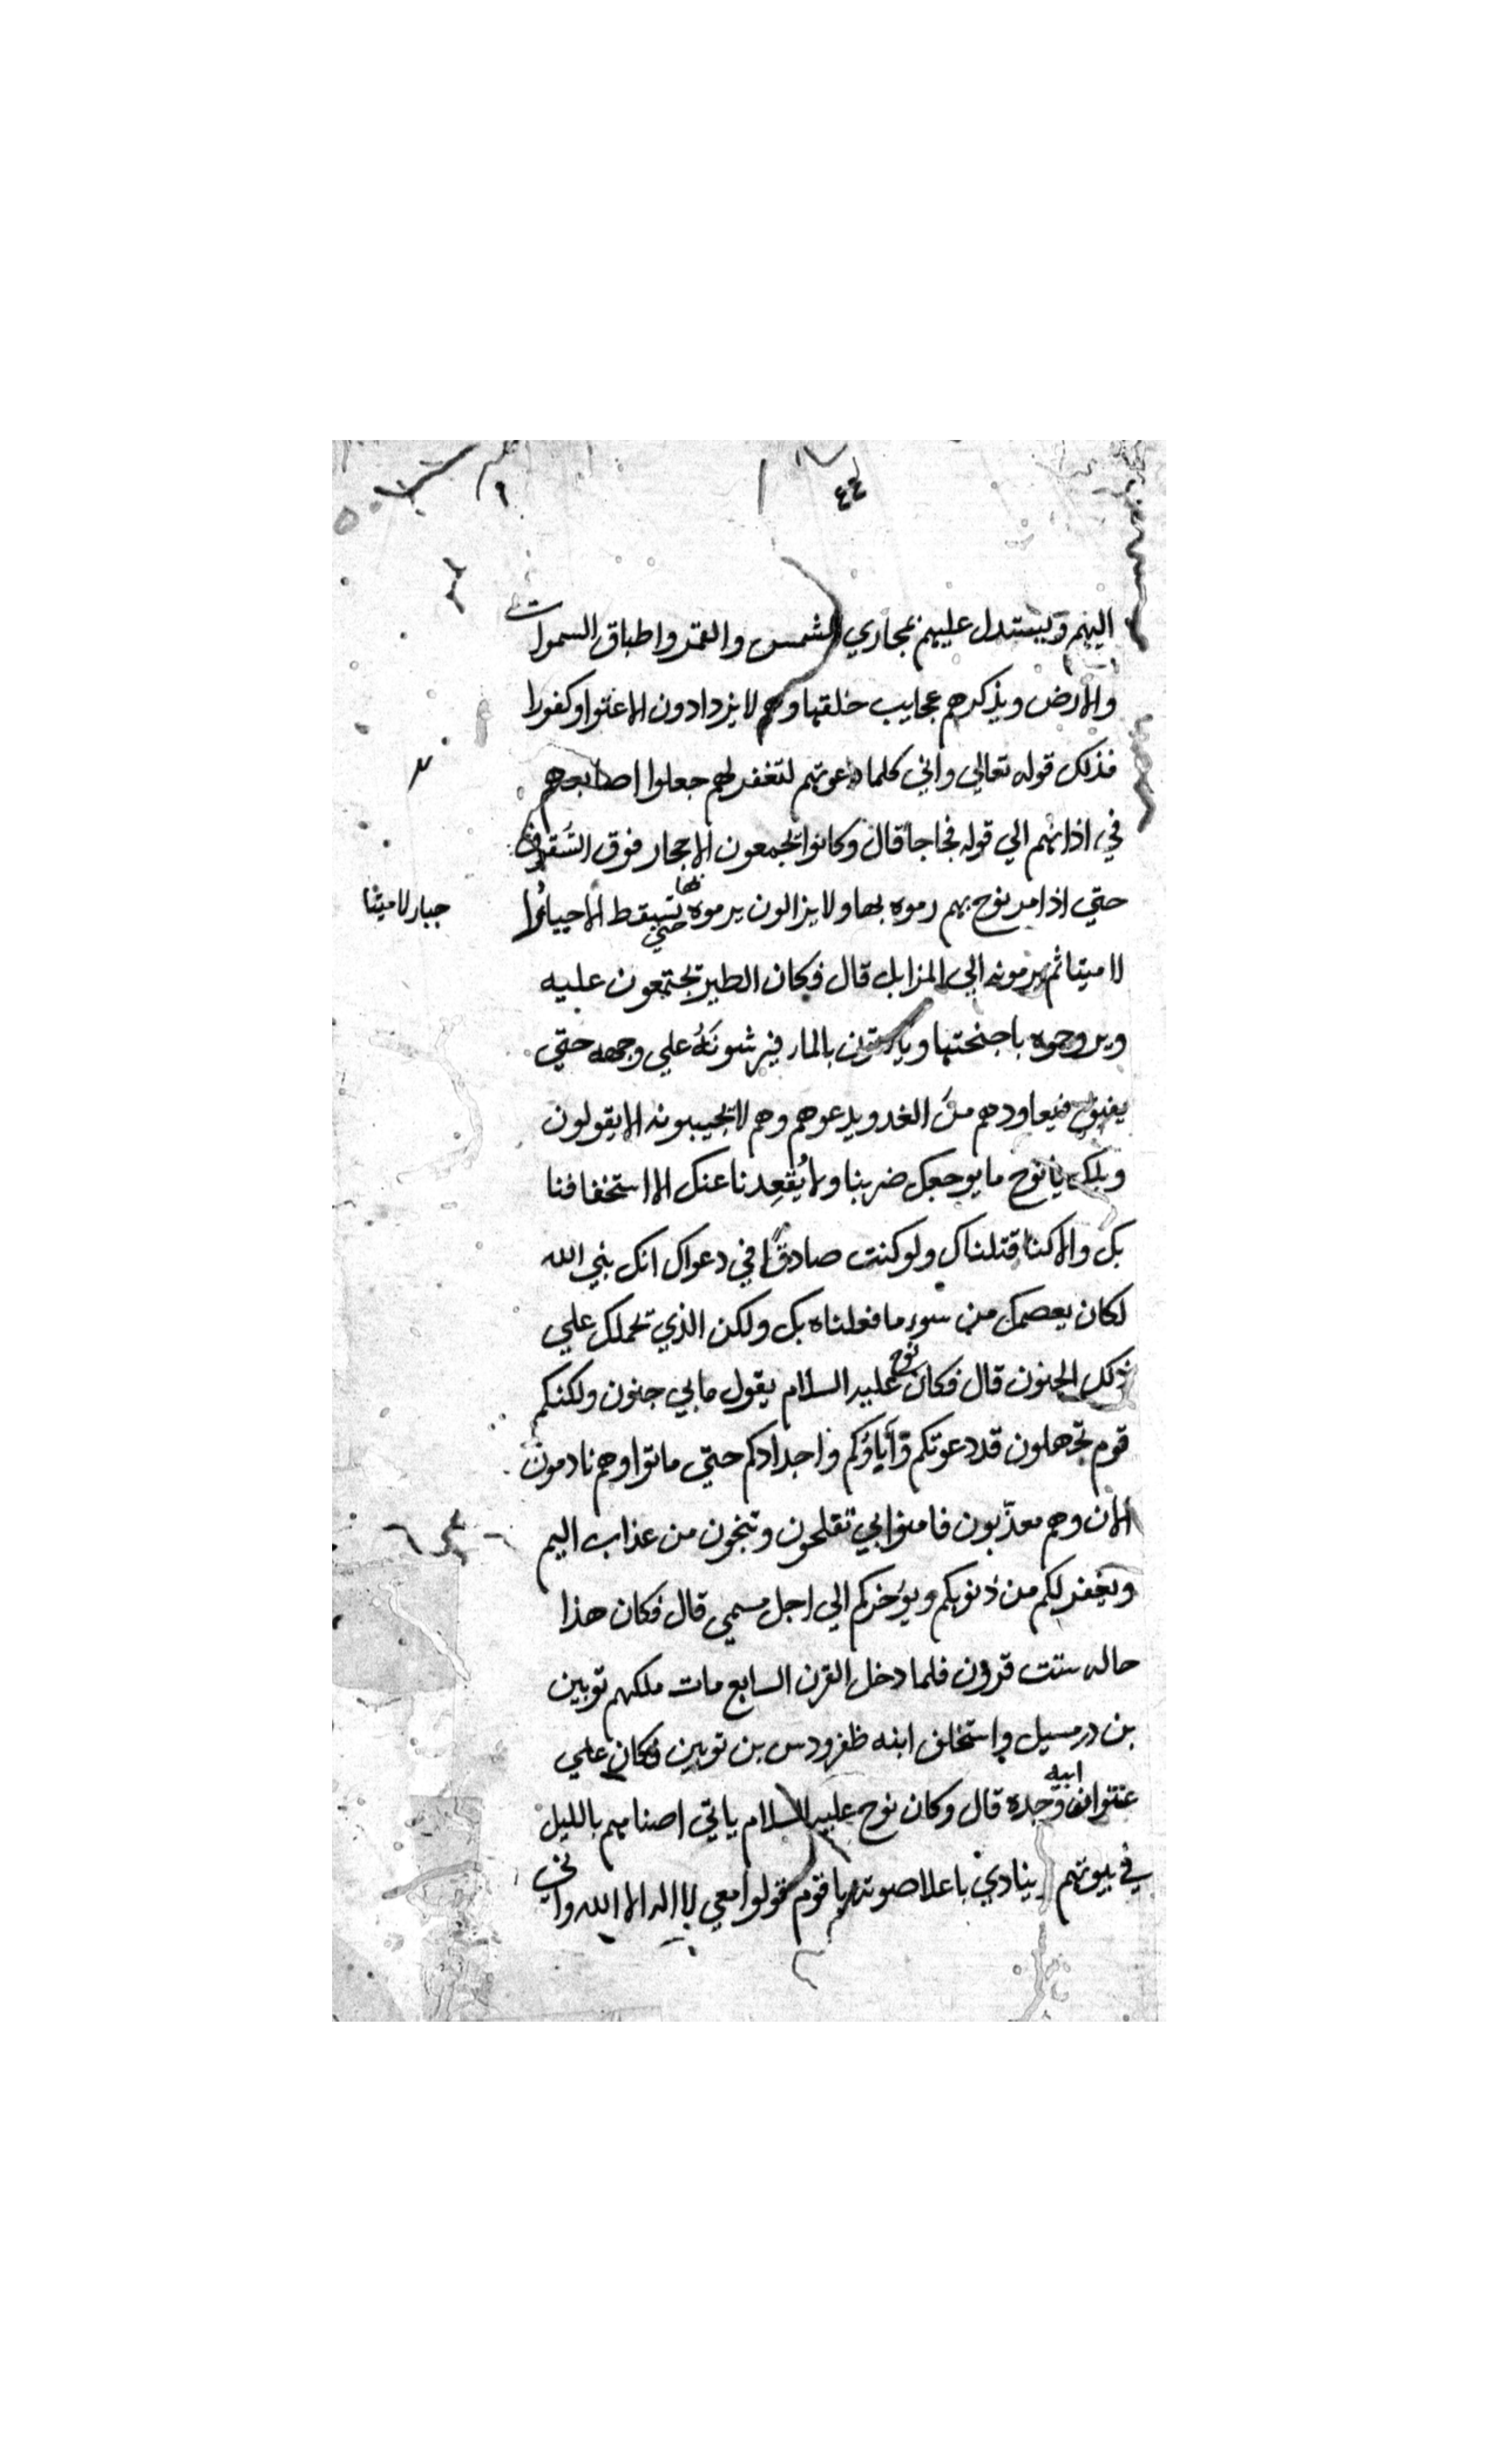 ٤٤
اليهم ويستدل عليهم بمجاري الشمس والقمر واطباق السموات
والارض ويذكرهم عجايب خلقها وهم لا يزدادون الا عتوا وكفورا
فذلك قوله تعالي واني كلما دعوتهم لتغفر لهم جعلوا اصابعهم
في اذانهم الي قوله فجاجا قال وكانوا يجمعون الاحجار فوق السقوف
حتي اذا مر نوح بهم رموه بها ولا يزالون يرموه بها حتي تسقط الاحيا
جبار لا ميتا
لا ميتا ثم يرمونه الي المزابل قال فكان الطير تجتمعون عليه
ويروحوه باجنحتها وياتون بالماء فيرشونه علي وجهه حتي
يفيق فيعاودهم من الغد ويدعوهم وهم لا يجيبونه الا يقولون
ويلك يا نوح ما يوجعك ضربنا ولا يقعدنا عنك الا استخفافنا
بك والا كنا قتلناك ولو كنت صادقا في دعواك انك نبي الله
لكان يعصمك من سوء ما فعلناه بك ولكن الذي تحملك علي
ذلك الجنون قال فكان نوح عليه السلام يقول ما بي جنون ولكنكم
قوم تجهلون قد دعوتكم وآباؤكم واجدادكم حتي ماتوا وهم نادمون
الان وهم معذّبون فامنوا بي تفلحون وتنجون من عذاب اليم
ويغفر لكم من ذنوبكم ويؤخركم الي اجل مسمي قال فكان هذا
حاله ستت قرون فلما دخل القرن السابع مات ملكهم توبين
بن درمسيل واستخلف ابنه ظفرودس بن توبين فكان علي
عتو ابيه وجده قال وكان نوح عليه السلام ياتي اصنامهم بالليل
في بيوتهم ينادي باعلا صوته يا قوم قولوا معي لا اله الا الله واني